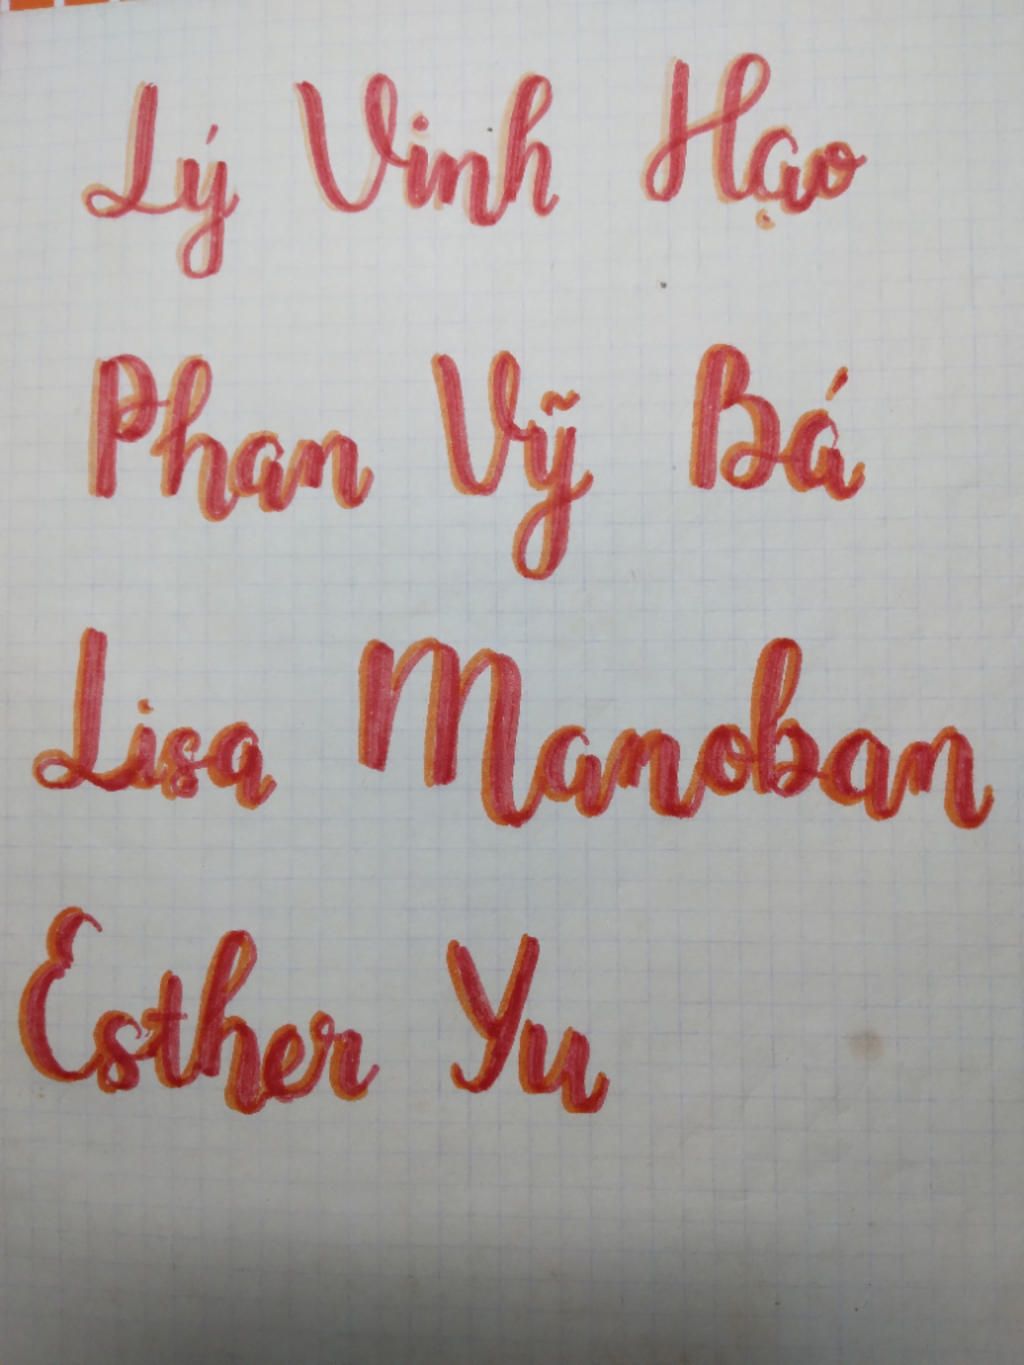 Lý Vinh Hạo
Phan Vỹ Bá
Lisa Manoban
Esther Yu